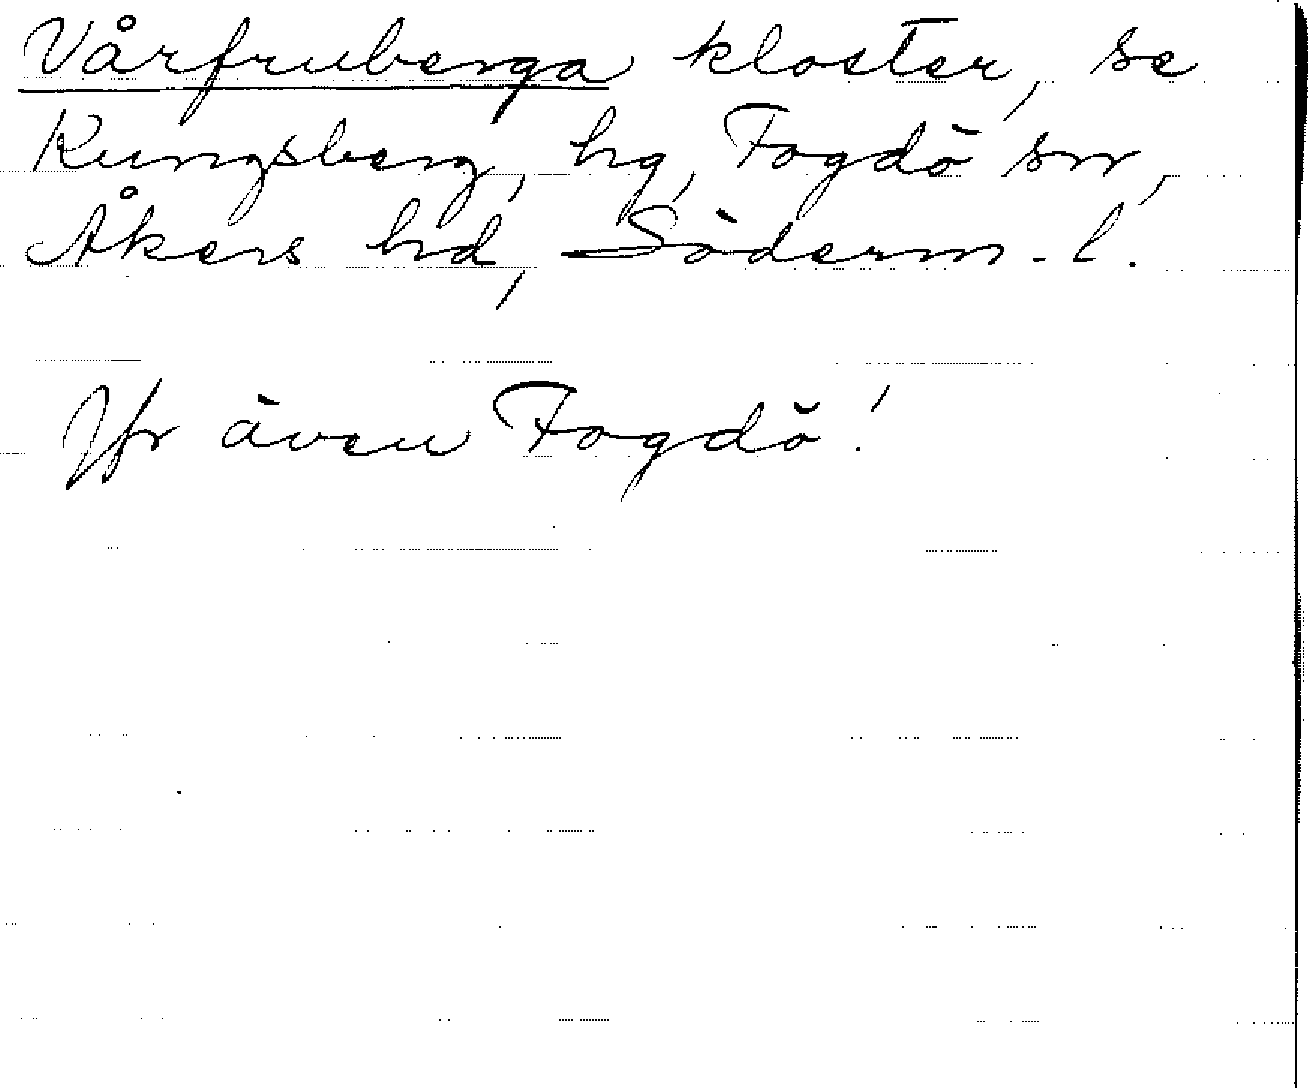 Vårfruberga kloster, se
Kungsberg, hg, Fogdö sn,
Åkers hd, Söderm. l.
Jfr även Fogdö!